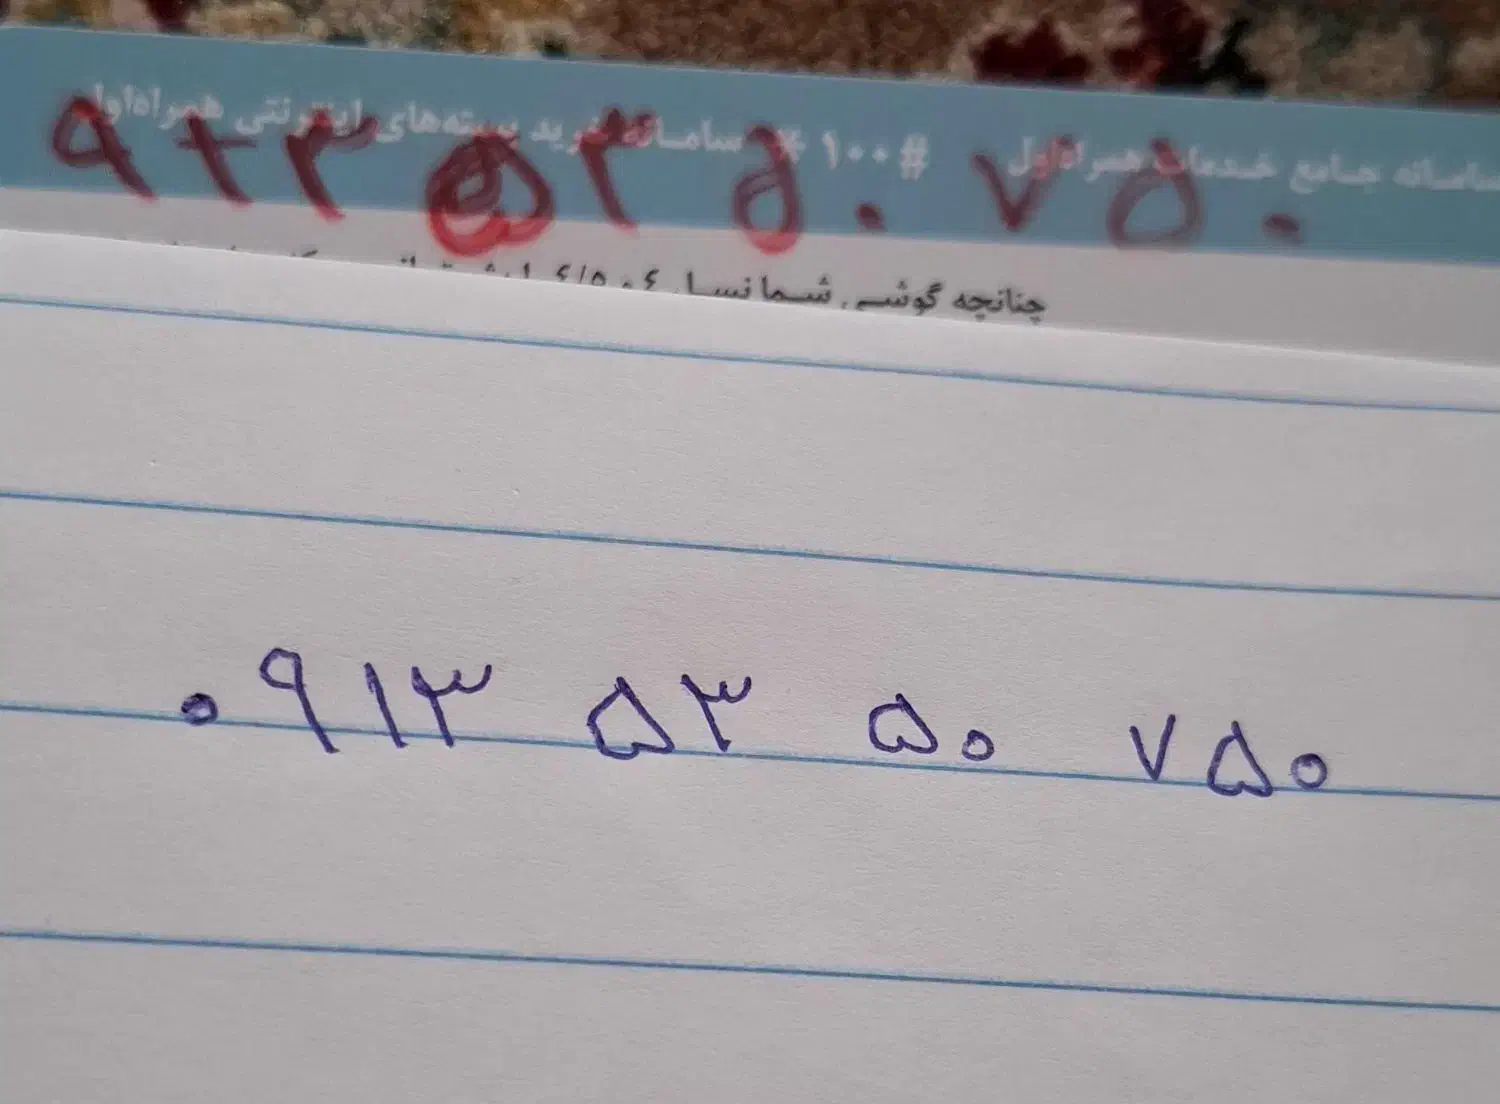 سامانه جامع خدمات همراه اول #۱۰۰* سامانه خرید بسته‌های اینترنتی همراه اول
۹۱۳۵۳۵۰۷۵۰
چنانچه گوشی شما نسل
۰۹۱۳ ۵۳ ۵۰ ۷۵۰